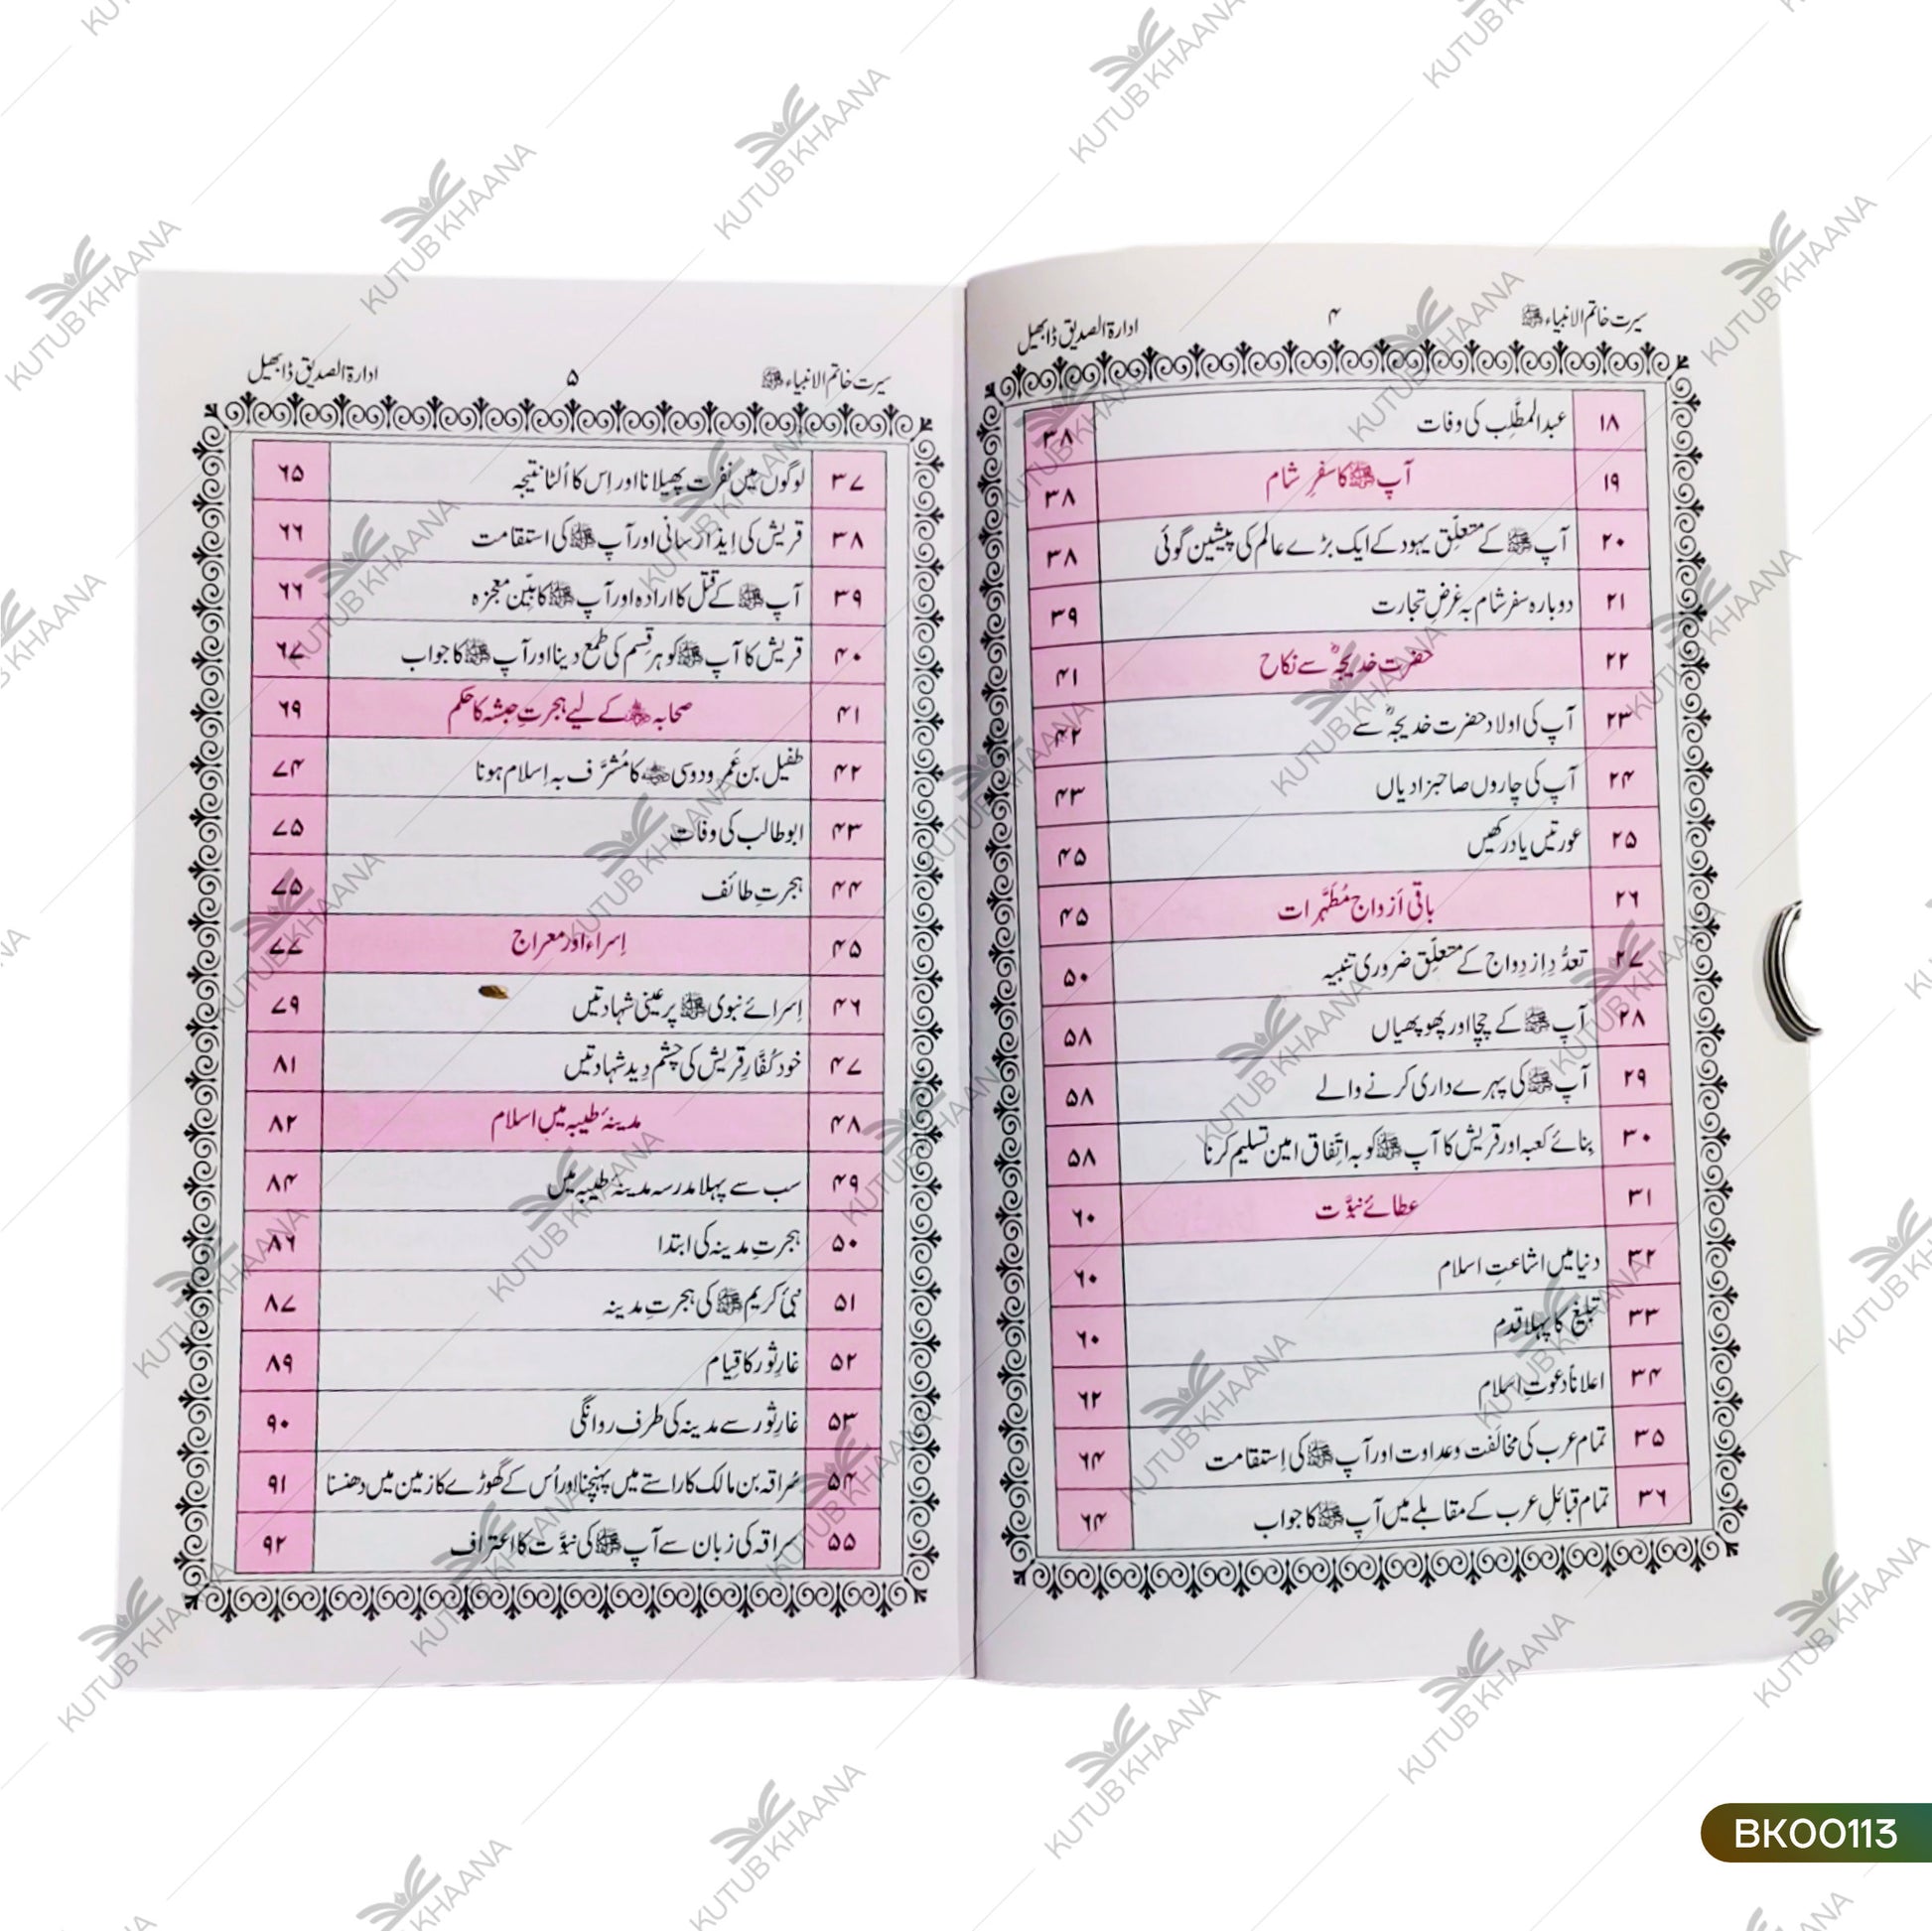 سیرت خاتم الانبیاء ﷺ ۴ ادارۃ الصدیق ڈابھیل
۱۸ عبدالمطَّلِب کی وفات ۳۸
۱۹ آپ ﷺ کا سفرِ شام ۳۸
۲۰ آپ ﷺ کے متعلِّق یہود کے ایک بڑے عالم کی پیشین گوئی ۳۸
۲۱ دوبارہ سفرِ شام بہ غرضِ تجارت ۳۹
۲۲ حضرت خدیجہؓ سے نکاح ۴۱
۲۳ آپ کی اولاد حضرت خدیجہؓ سے ۴۲
۲۴ آپ کی چاروں صاحبزادیاں ۴۳
۲۵ عورتیں یاد رکھیں ۴۵
۲۶ باقی اَزواجِ مُطَہَّرات ۴۵
۲۷ تعدُّدِ اِزدِواج کے متعلِّق ضروری تنبیہ ۵۰
۲۸ آپ ﷺ کے چچا اور پھوپھیاں ۵۸
۲۹ آپ ﷺ کی پہرے داری کرنے والے ۵۸
۳۰ بِنائے کعبہ اور قریش کا آپ ﷺ کو بہ اتِّفاق امین تسلیم کرنا ۵۸
۳۱ عطائے نبوَّت ۶۰
۳۲ دنیا میں اشاعتِ اسلام ۶۰
۳۳ تبلیغ کا پہلا قدم ۶۰
۳۴ اعلاناً دعوتِ اِسلام ۶۲
۳۵ تمام عرب کی مخالفت وعداوت اور آپ ﷺ کی اِستقامت ۶۴
۳۶ تمام قبائلِ عرب کے مقابلے میں آپ ﷺ کا جواب ۶۴
سیرت خاتم الانبیاء ﷺ ۵ ادارۃ الصدیق ڈابھیل
۳۷ لوگوں میں نفرت پھیلانا اور اِس کا اُلٹا نتیجہ ۶۵
۳۸ قریش کی اِیذا رَسانی اور آپ ﷺ کی استقامت ۶۶
۳۹ آپ ﷺ کے قتل کا ارادہ اور آپ ﷺ کا بیِّن معجزہ ۶۶
۴۰ قریش کا آپ ﷺ کو ہر قِسم کی طمع دینا اور آپ ﷺ کا جواب ۶۷
۴۱ صحابہ ؓ کے لیے ہجرتِ حبشہ کا حکم ۶۹
۴۲ طفیل بن عَمرو دوسی ؓ کا مُشرَّف بہ اِسلام ہونا ۷۴
۴۳ ابوطالب کی وفات ۷۵
۴۴ ہجرتِ طائف ۷۵
۴۵ اِسراء اور معراج ۷۷
۴۶ اِسرائے نبوی ﷺ پر عینی شہادتیں ۷۹
۴۷ خود کُفَّارِ قریش کی چشم دِید شہادتیں ۸۱
۴۸ مدینۂ طیبہ میں اسلام ۸۲
۴۹ سب سے پہلا مدرسہ مدینۂ طیبہ میں ۸۴
۵۰ ہجرتِ مدینہ کی ابتدا ۸۶
۵۱ نبیٔ کریم ﷺ کی ہجرتِ مدینہ ۸۷
۵۲ غارِ ثور کا قِیام ۸۹
۵۳ غارِ ثور سے مدینہ کی طرف روانگی ۹۰
۵۴ سُراقہ بن مالک کا راستے میں پہنچنا اور اُس کے گھوڑے کا زمین میں دھنسنا ۹۱
۵۵ سراقہ کی زبان سے آپ ﷺ کی نبوَّت کا اعتراف ۹۲
KUTUB KHAANA
BK00113